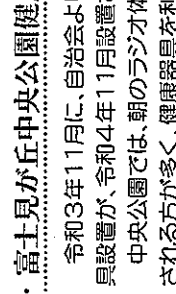 ・富士見が丘中央公園健
令和3年11月に、自治会よ
具設置が、令和4年11月設置
中央公園では、朝のラジオ体
される方が多く、健康器具を利